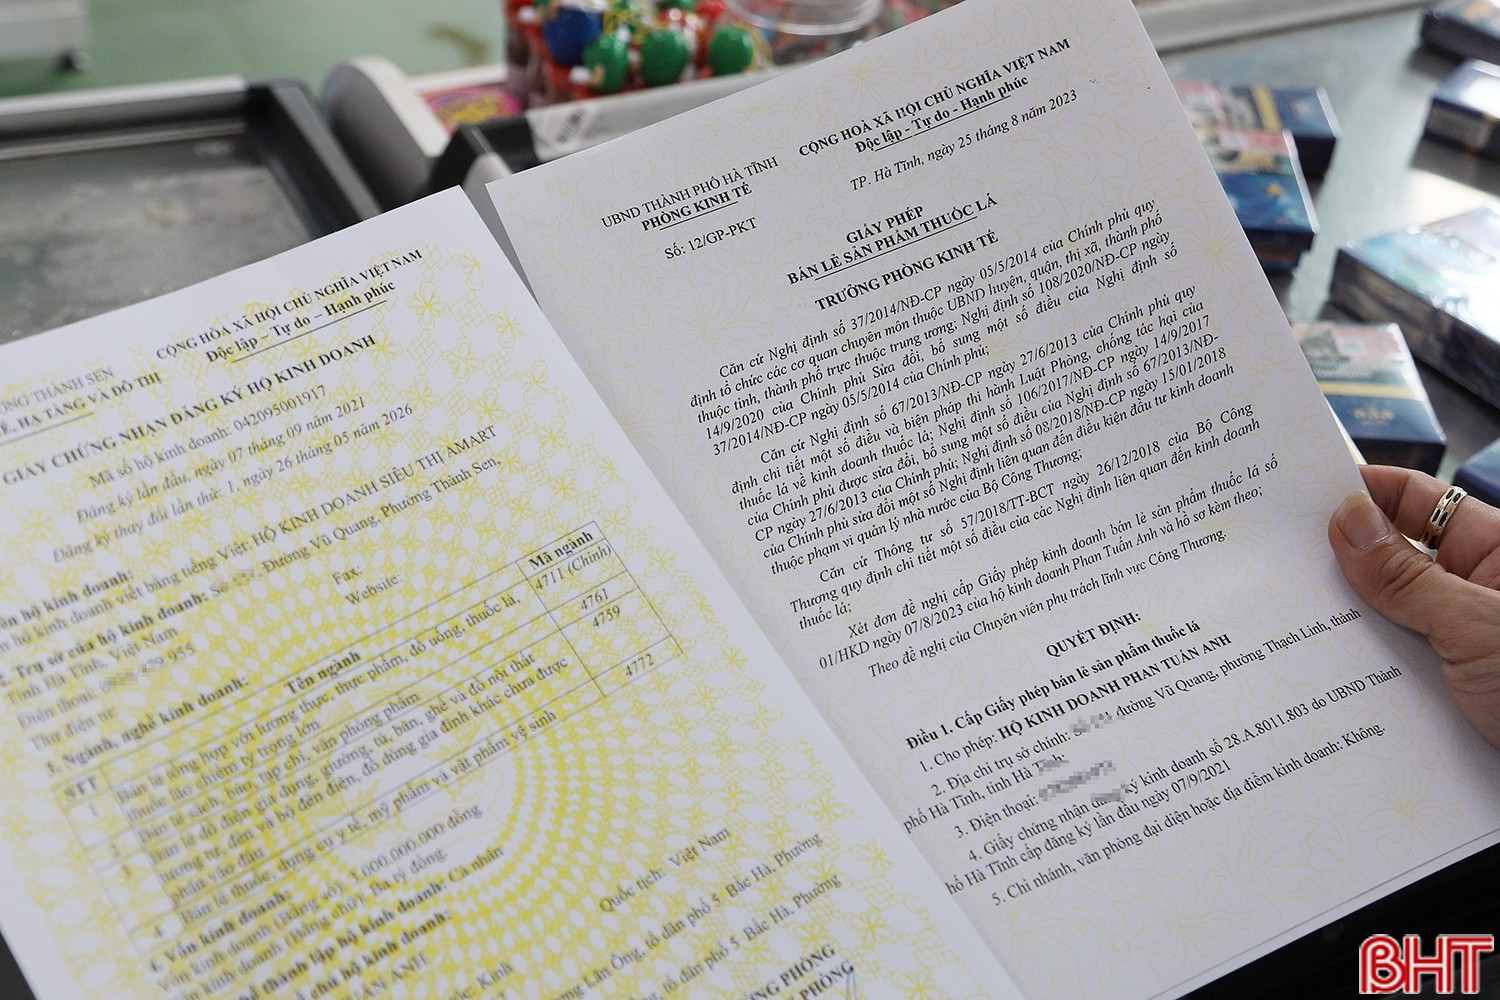 ÔNG THÀNH SEN
Ế, HẠ TẦNG VÀ ĐÔ THỊ
CỘNG HOÀ XÃ HỘI CHỦ NGHĨA VIỆT NAM
Độc lập – Tự do – Hạnh phúc
GIẤY CHỨNG NHẬN ĐĂNG KÝ HỘ KINH DOANH
Mã số hộ kinh doanh: 042095001917
Đăng ký lần đầu, ngày 07 tháng 09 năm 2021
Đăng ký thay đổi lần thứ: 1, ngày 26 tháng 05 năm 2026
ên hộ kinh doanh:
n hộ kinh doanh viết bằng tiếng Việt: HỘ KINH DOANH SIÊU THỊ AMART
. Trụ sở của hộ kinh doanh: Số Đường Vũ Quang, Phường Thành Sen,
Tỉnh Hà Tĩnh, Việt Nam
Điện thoại: 955
Fax:
Thư điện tử:
Website:
3. Ngành, nghề kinh doanh:
STT Tên ngành Mã ngành
1 Bán lẻ tổng hợp với lương thực, thực phẩm, đồ uống, thuốc lá, 4711 (Chính)
thuốc lào chiếm tỷ trọng lớn
2 Bán lẻ sách, báo, tạp chí, văn phòng phẩm 4761
3 Bán lẻ đồ điện gia dụng, giường, tủ, bàn, ghế và đồ nội thất 4759
tương tự, đèn và bộ đèn điện, đồ dùng gia đình khác chưa được
phân vào đâu
4 Bán lẻ thuốc, dụng cụ y tế, mỹ phẩm và vật phẩm vệ sinh 4772
4. Vốn kinh doanh:
Vốn kinh doanh (Bằng số): 3.000.000.000 đồng
n kinh doanh (Bằng chữ): Ba tỷ đồng.
thành lập hộ kinh doanh: Cá nhân
chủ hộ kinh doanh:
UẤN ANH
tộc: Kinh Quốc tịch: Việt Nam
ơng Lãn Ông, tổ dân phố 5 Bắc Hà, Phường
tổ dân phố 5 Bắc Hà, Phường
NG PHÒNG
PHÒNG
UBND THÀNH PHỐ HÀ TĨNH
PHÒNG KINH TẾ
Số: 12/GP-PKT
CỘNG HOÀ XÃ HỘI CHỦ NGHĨA VIỆT NAM
Độc lập - Tự do - Hạnh phúc
TP. Hà Tĩnh, ngày 25 tháng 8 năm 2023
GIẤY PHÉP
BÁN LẺ SẢN PHẨM THUỐC LÁ
TRƯỞNG PHÒNG KINH TẾ
Căn cứ Nghị định số 37/2014/NĐ-CP ngày 05/5/2014 của Chính phủ quy
định tổ chức các cơ quan chuyên môn thuộc UBND huyện, quận, thị xã, thành phố
thuộc tỉnh, thành phố trực thuộc trung ương; Nghị định số 108/2020/NĐ-CP ngày
14/9/2020 của Chính phủ Sửa đổi, bổ sung một số điều của Nghị định số
37/2014/NĐ-CP ngày 05/5/2014 của Chính phủ;
Căn cứ Nghị định số 67/2013/NĐ-CP ngày 27/6/2013 của Chính phủ quy
định chi tiết một số điều và biện pháp thi hành Luật Phòng, chống tác hại của
thuốc lá về kinh doanh thuốc lá; Nghị định số 106/2017/NĐ-CP ngày 14/9/2017
của Chính phủ được sửa đổi, bổ sung một số điều của Nghị định số 67/2013/NĐ-
CP ngày 27/6/2013 của Chính phủ; Nghị định số 08/2018/NĐ-CP ngày 15/01/2018
của Chính phủ sửa đổi một số Nghị định liên quan đến điều kiện đầu tư kinh doanh
thuộc phạm vi quản lý nhà nước của Bộ Công Thương;
Căn cứ Thông tư số 57/2018/TT-BCT ngày 26/12/2018 của Bộ Công
Thương quy định chi tiết một số điều của các Nghị định liên quan đến kinh doanh
thuốc lá;
Xét đơn đề nghị cấp Giấy phép kinh doanh bán lẻ sản phẩm thuốc lá số
01/HKD ngày 07/8/2023 của hộ kinh doanh Phan Tuấn Anh và hồ sơ kèm theo;
Theo đề nghị của Chuyên viên phụ trách lĩnh vực Công Thương.
QUYẾT ĐỊNH:
Điều 1. Cấp Giấy phép bán lẻ sản phẩm thuốc lá
1. Cho phép: HỘ KINH DOANH PHAN TUẤN ANH
2. Địa chỉ trụ sở chính: đường Vũ Quang, phường Thạch Linh, thành
phố Hà Tĩnh, tỉnh Hà Tĩnh;
3. Điện thoại:
4. Giấy chứng nhận đăng ký kinh doanh số 28.A.8011.803 do UBND Thành
hố Hà Tĩnh cấp đăng ký lần đầu ngày 07/9/2021
5. Chi nhánh, văn phòng đại diện hoặc địa điểm kinh doanh: Không.
BHT